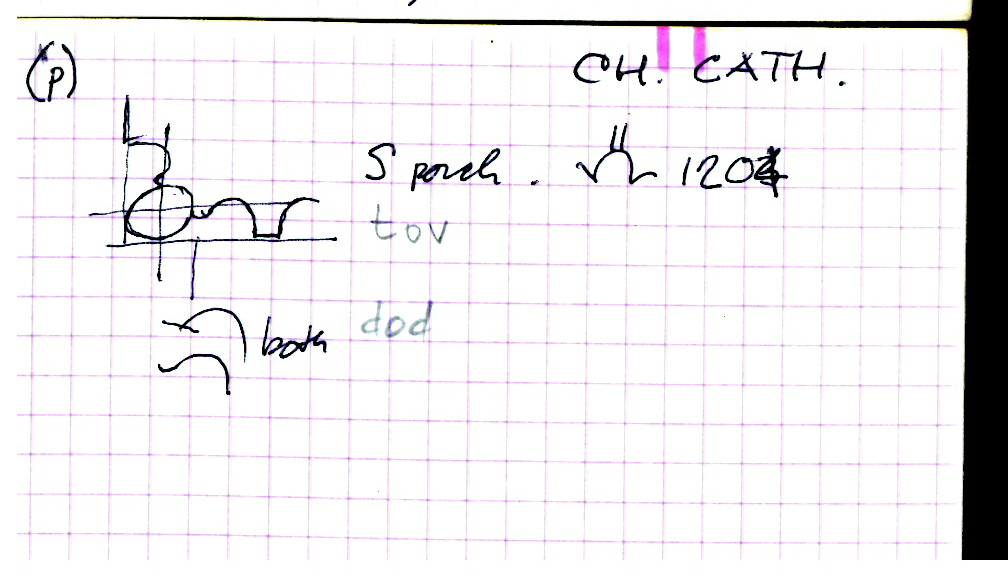 (p)
CH. CATH.
S porch. 120
tov
dod
both